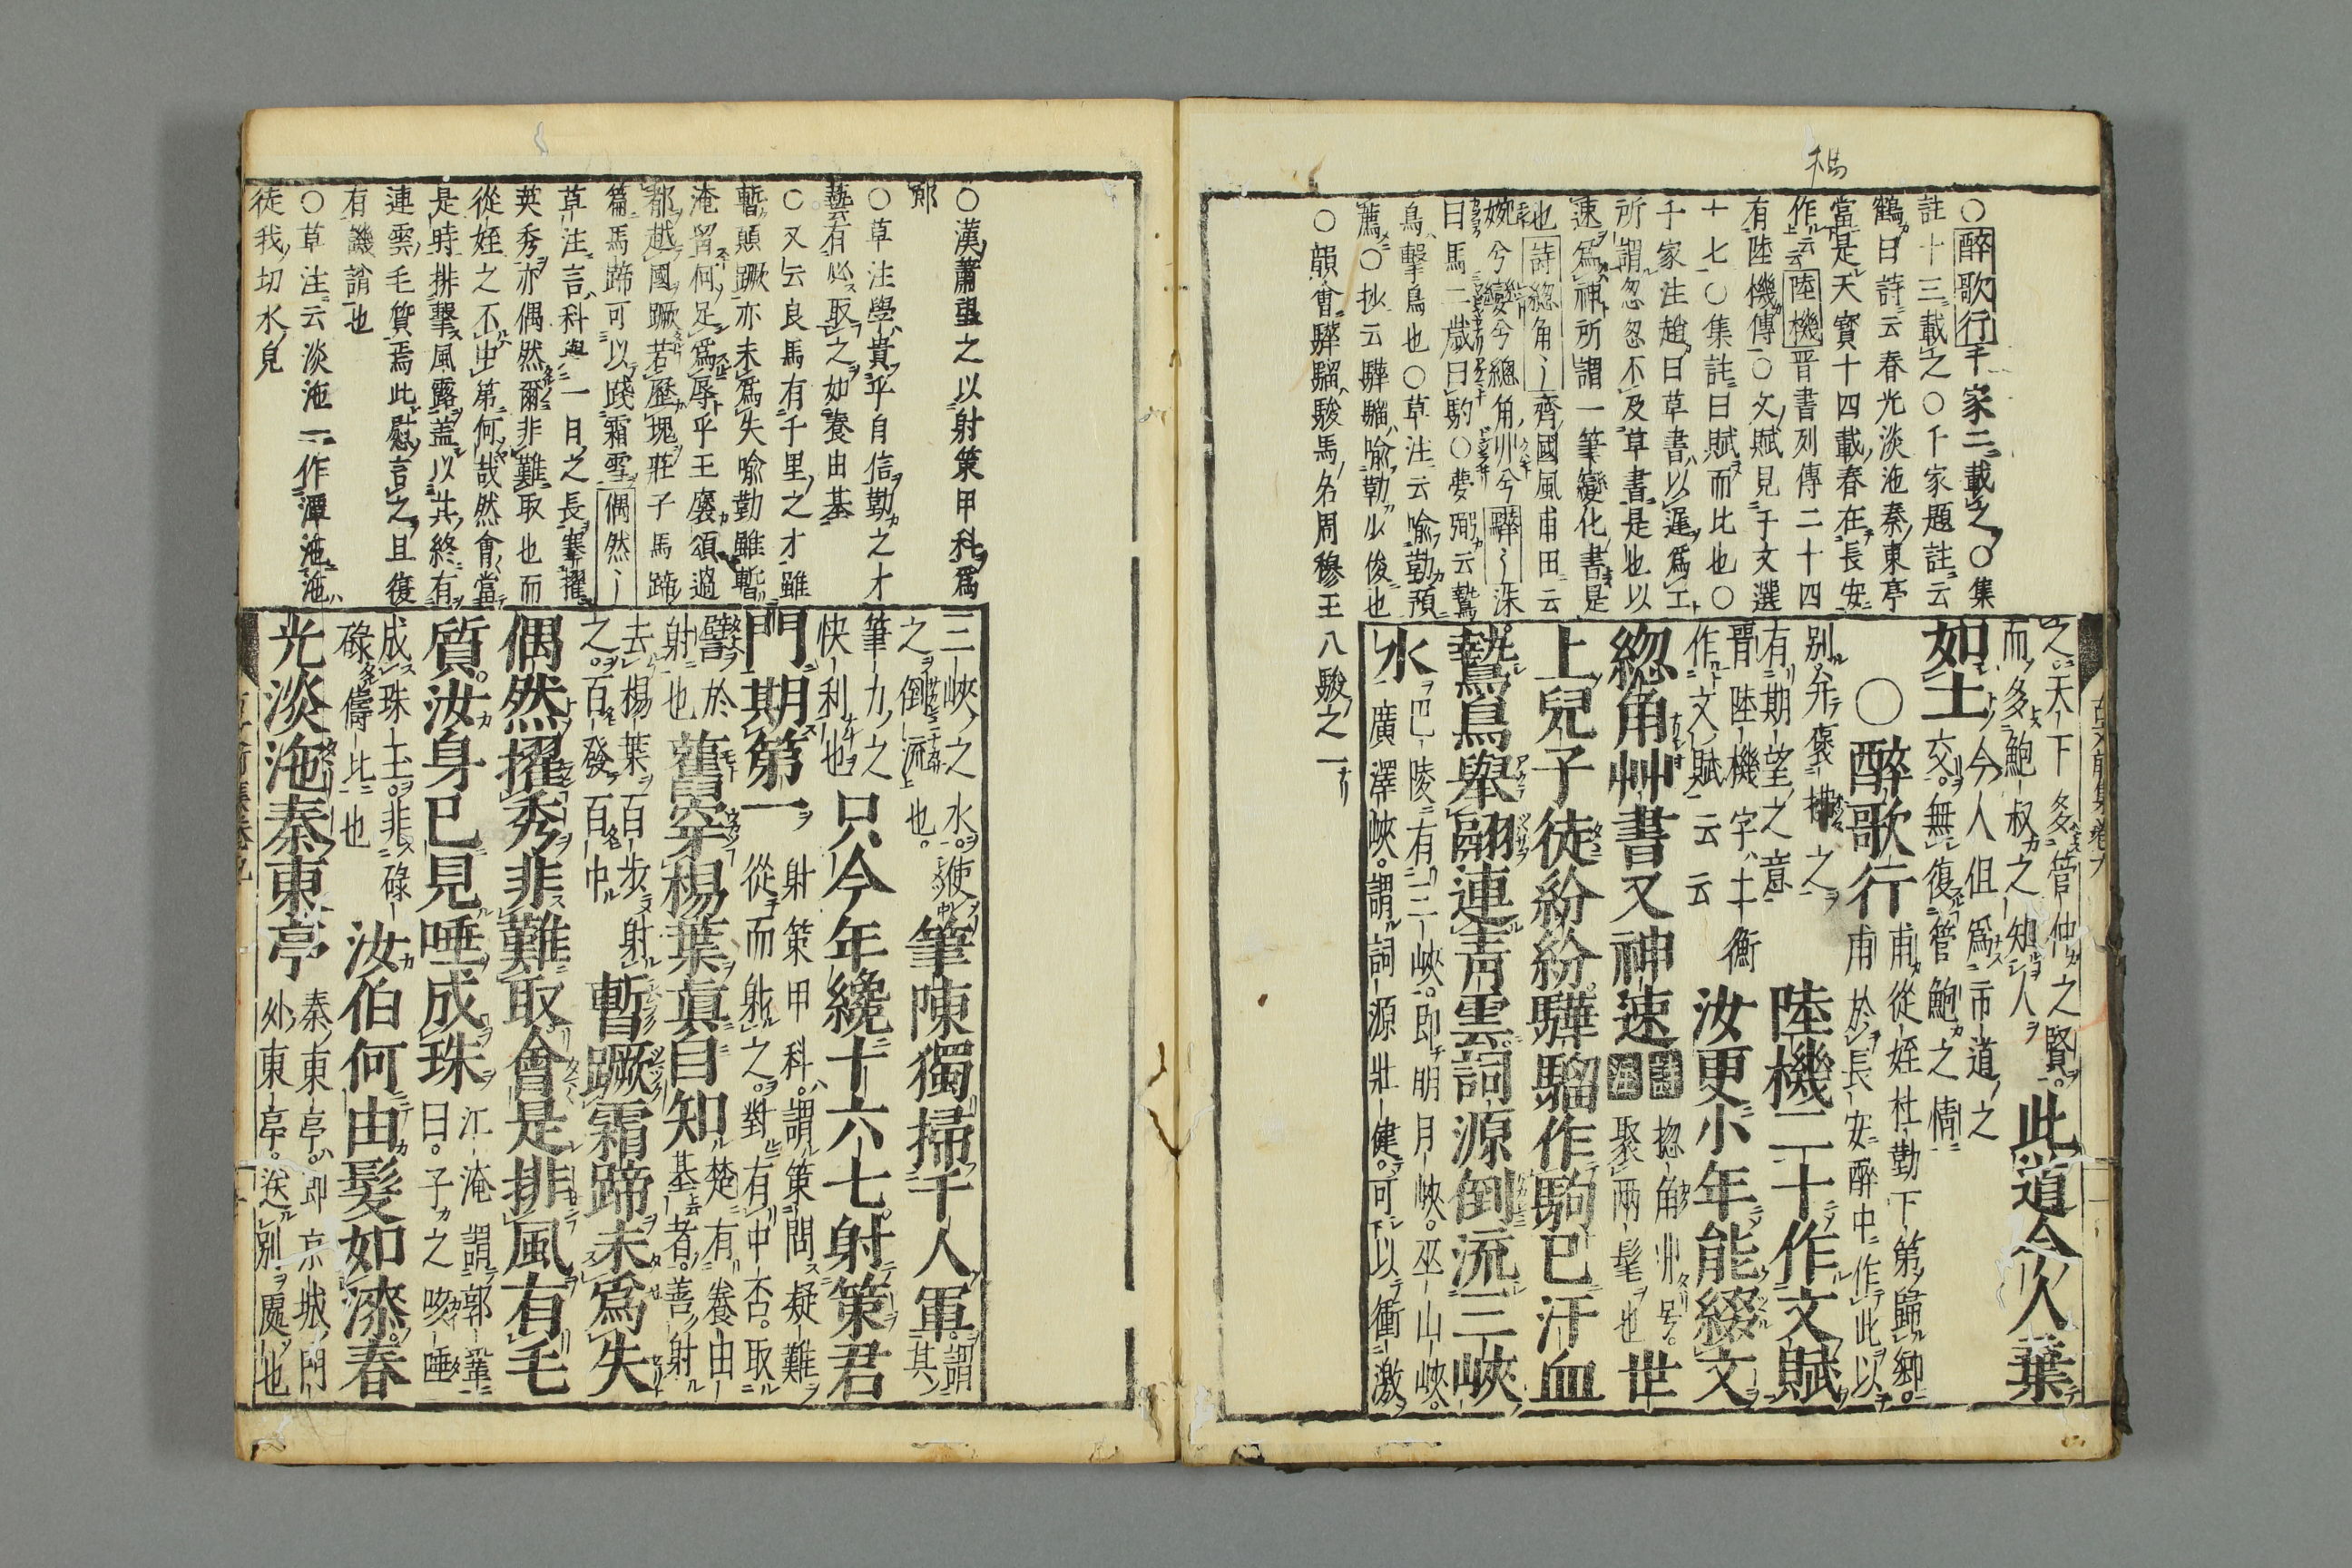 楀
○醉歌行千家二載之○集
註十三載之○千家題註云
鶴曰詩云春光淡沲秦東亭
當是天寶十四載春在長安
作云云陸機晋書列傳二十四
有陸機傳○文賦見于文選
十七○集註曰賦而比也○
千家注趙曰草書以遲爲工
所謂忽忽不及草書是也以
速爲神所謂一筆變化書是
也詩總角〻齊國風甫田云
婉兮孌兮總角丱兮驊〻洙
曰馬二歲曰駒○夢弼云鷙
鳥擊鳥也○草注云喩勤預
薦○抄云驊騮喩勤以俊也
○韻會驊騮駿馬名周穆王八駿之一
之天下多管仲之賢
而多鮑叔之知人
此道今人棄
如土
今人但爲市道之
交無復管鮑之情
○醉歌行
甫從姪杜勤下第歸鄉
甫於長安醉中作此以
別弁褒拂之
有期望之意
陸機二十作文賦
晋陸機字士衡
作文賦云云
汝更小年能綴文
總角艸書又神速
揔角丱号
聚兩髦也
世
上兒子徒紛紛驊騮作駒已汗血
鷙鳥舉翮連靑雲詞源倒流三峽
水
巴陵有三峽即明月峽巫山峽
廣澤峽謂詞源壯健可以衝激
○漢蕭望之以射策甲科爲
郎
○草注學貴乎自信勤之才
藝有必取之如養由基
○又云良馬有千里之才雖
暫顛蹶亦未爲失喩勤雖暫
淹留何足爲辱乎王襃頌過
都越國蹶若歷塊莊子馬蹄
篇馬蹄可以踐霜雪偶然〻
草注言科與一日之長搴擢
英秀亦偶然爾非難取也而
從姪之不出第何哉然會當
是時排擊風露蓋以其終有
連雲毛質焉此慰言之且復
有譏誚也
○草注云淡沲一作潭沲沲
徒我切水皃
三峽之水
之倒流也
筆陳獨掃千人軍
謂其
筆力之
快利也
只今年纔十六七射策君
門期第一
射策甲科謂策問疑難
從而射之對有中否取
譬於
射也
舊穿楊葉眞自知
楚有養由
基者善射
去楊葉百步射
之百發百中
暫蹶霜蹄未爲失
偶然擢秀非難取會是排風有毛
質汝身已見唾成珠
江淹謂郭鞏
曰子之咳唾
成珠玉非碌
碌儔比也
汝伯何由髮如漆春
光淡沲秦東亭
秦東亭即京城門
外東亭送別處也